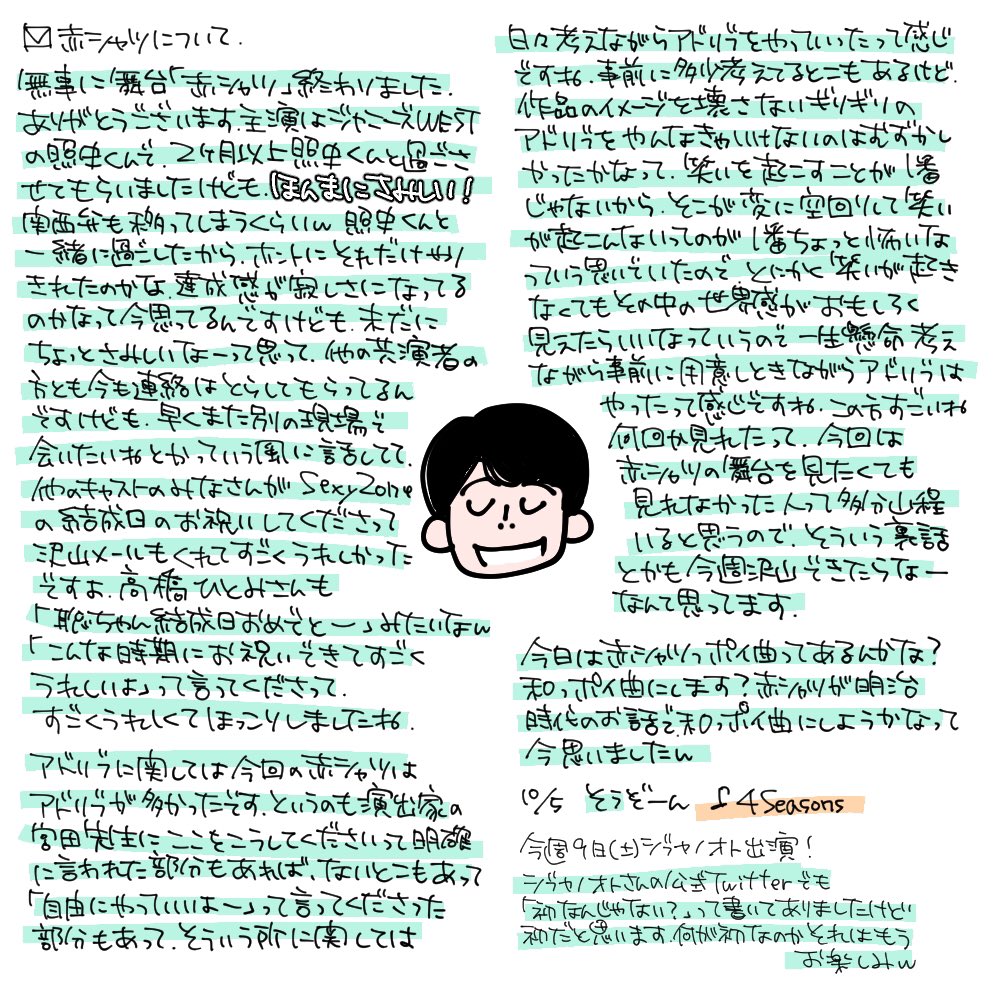 赤シャツについて.
無事に舞台「赤シャツ」終わりました.
ありがとうございます.主演はジャニーズWEST
の照史くんで、2ヶ月以上照史くんと過ごさ
せてもらいましたけども.ほんまにさみしい!
関西弁も移ってしまうくらいw 照史くんと
一緒に過ごしたから、ホントにそれだけやり
きれたのかな、達成感が寂しさになってる
のかなって今思ってるんですけども、未だに
ちょっとさみしいなーって思って、他の共演者の
方とも今も連絡はとらしてもらってるん
ですけども、早くまた別の現場で
会いたいねとかっていう風に話してて、
他のキャストのみなさんがSexyZone
の結成日のお祝いしてくださって
沢山メールもくれてすごくうれしかった
ですよ.高橋ひとみさんも
「聡ちゃん結成日おめでとー」みたいなw
「こんな時期にお祝いできてすごく
うれしいよ」って言ってくださって.
すごくうれしくてほっこりしましたね.
アドリブに関しては今回の赤シャツは
アドリブが多かったです.というのも演出家の
宮田先生にここをこうしてくださいって明確
に言われた部分もあれば、ないとこもあって
「自由にやっていいよー」って言ってくださった
部分もあって.そういう所に関しては
日々考えながらアドリブをやっていったって感じ
ですね.事前に多少考えてるとこもあるけど.
作品のイメージを壊さないギリギリの
アドリブをやんなきゃいけないのはむずかし
かったかなって.笑いを起こすことが1番
じゃないから.そこが変に空回りして笑い
が起こんないってのが1番ちょっと怖いな
っていう思いでいたので とにかく笑いが起き
なくてもその中の世界感がおもしろく
見えたらいいなっていうので一生懸命考え
ながら事前に用意しときながらアドリブは
やったって感じですね.この方すごいね
何回か見れたって.今回は
赤シャツの舞台を見たくても
見れなかった人って多分山程
いると思うので、そういう裏話
とかも今週沢山できたらなー
なんて思ってます.
今日は赤シャツっポイ曲ってあるんかな?
和っポイ曲にします?赤シャツが明治
時代のお話で和っポイ曲にしようかなって
今思いましたw
10/5 そうぞーん ♪4Seasons
今週9日(土)シブヤノオト出演!
シブヤノオトさんの公式Twitterでも
「初なんじゃない?」って書いてありましたけど
初だと思います.何が初なのかそれはもう
お楽しみw